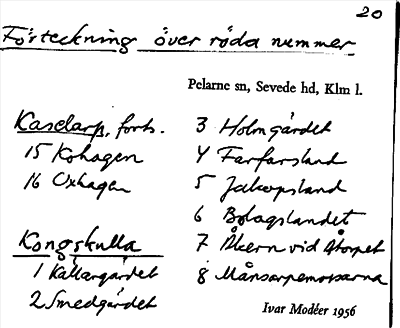 20
Förteckning över röda nummer
Pelarne sn, Sevede hd, Klm l.
Kaselarp, forts.
15 Kohagen
16 Oxhagen
Kongskulla
1 Källargärdet
2 Smedgärdet
3 Holmgärdet
4 Farfarsland
5 Jakopsland
6 Bolagslandet
7 Åkern vid Atorpet
8 Månsarpemossarna
Ivar Modéer 1956